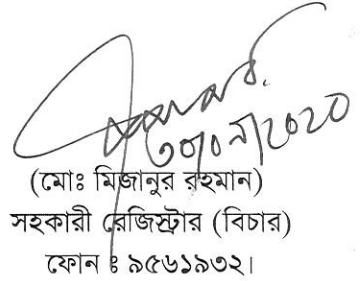 ৩০/০৯/২০২০
(মোঃ মিজানুর রহমান)
সহকারী রেজিস্ট্রার (বিচার)
ফোন ঃ ৯৫৬১৯৩২।